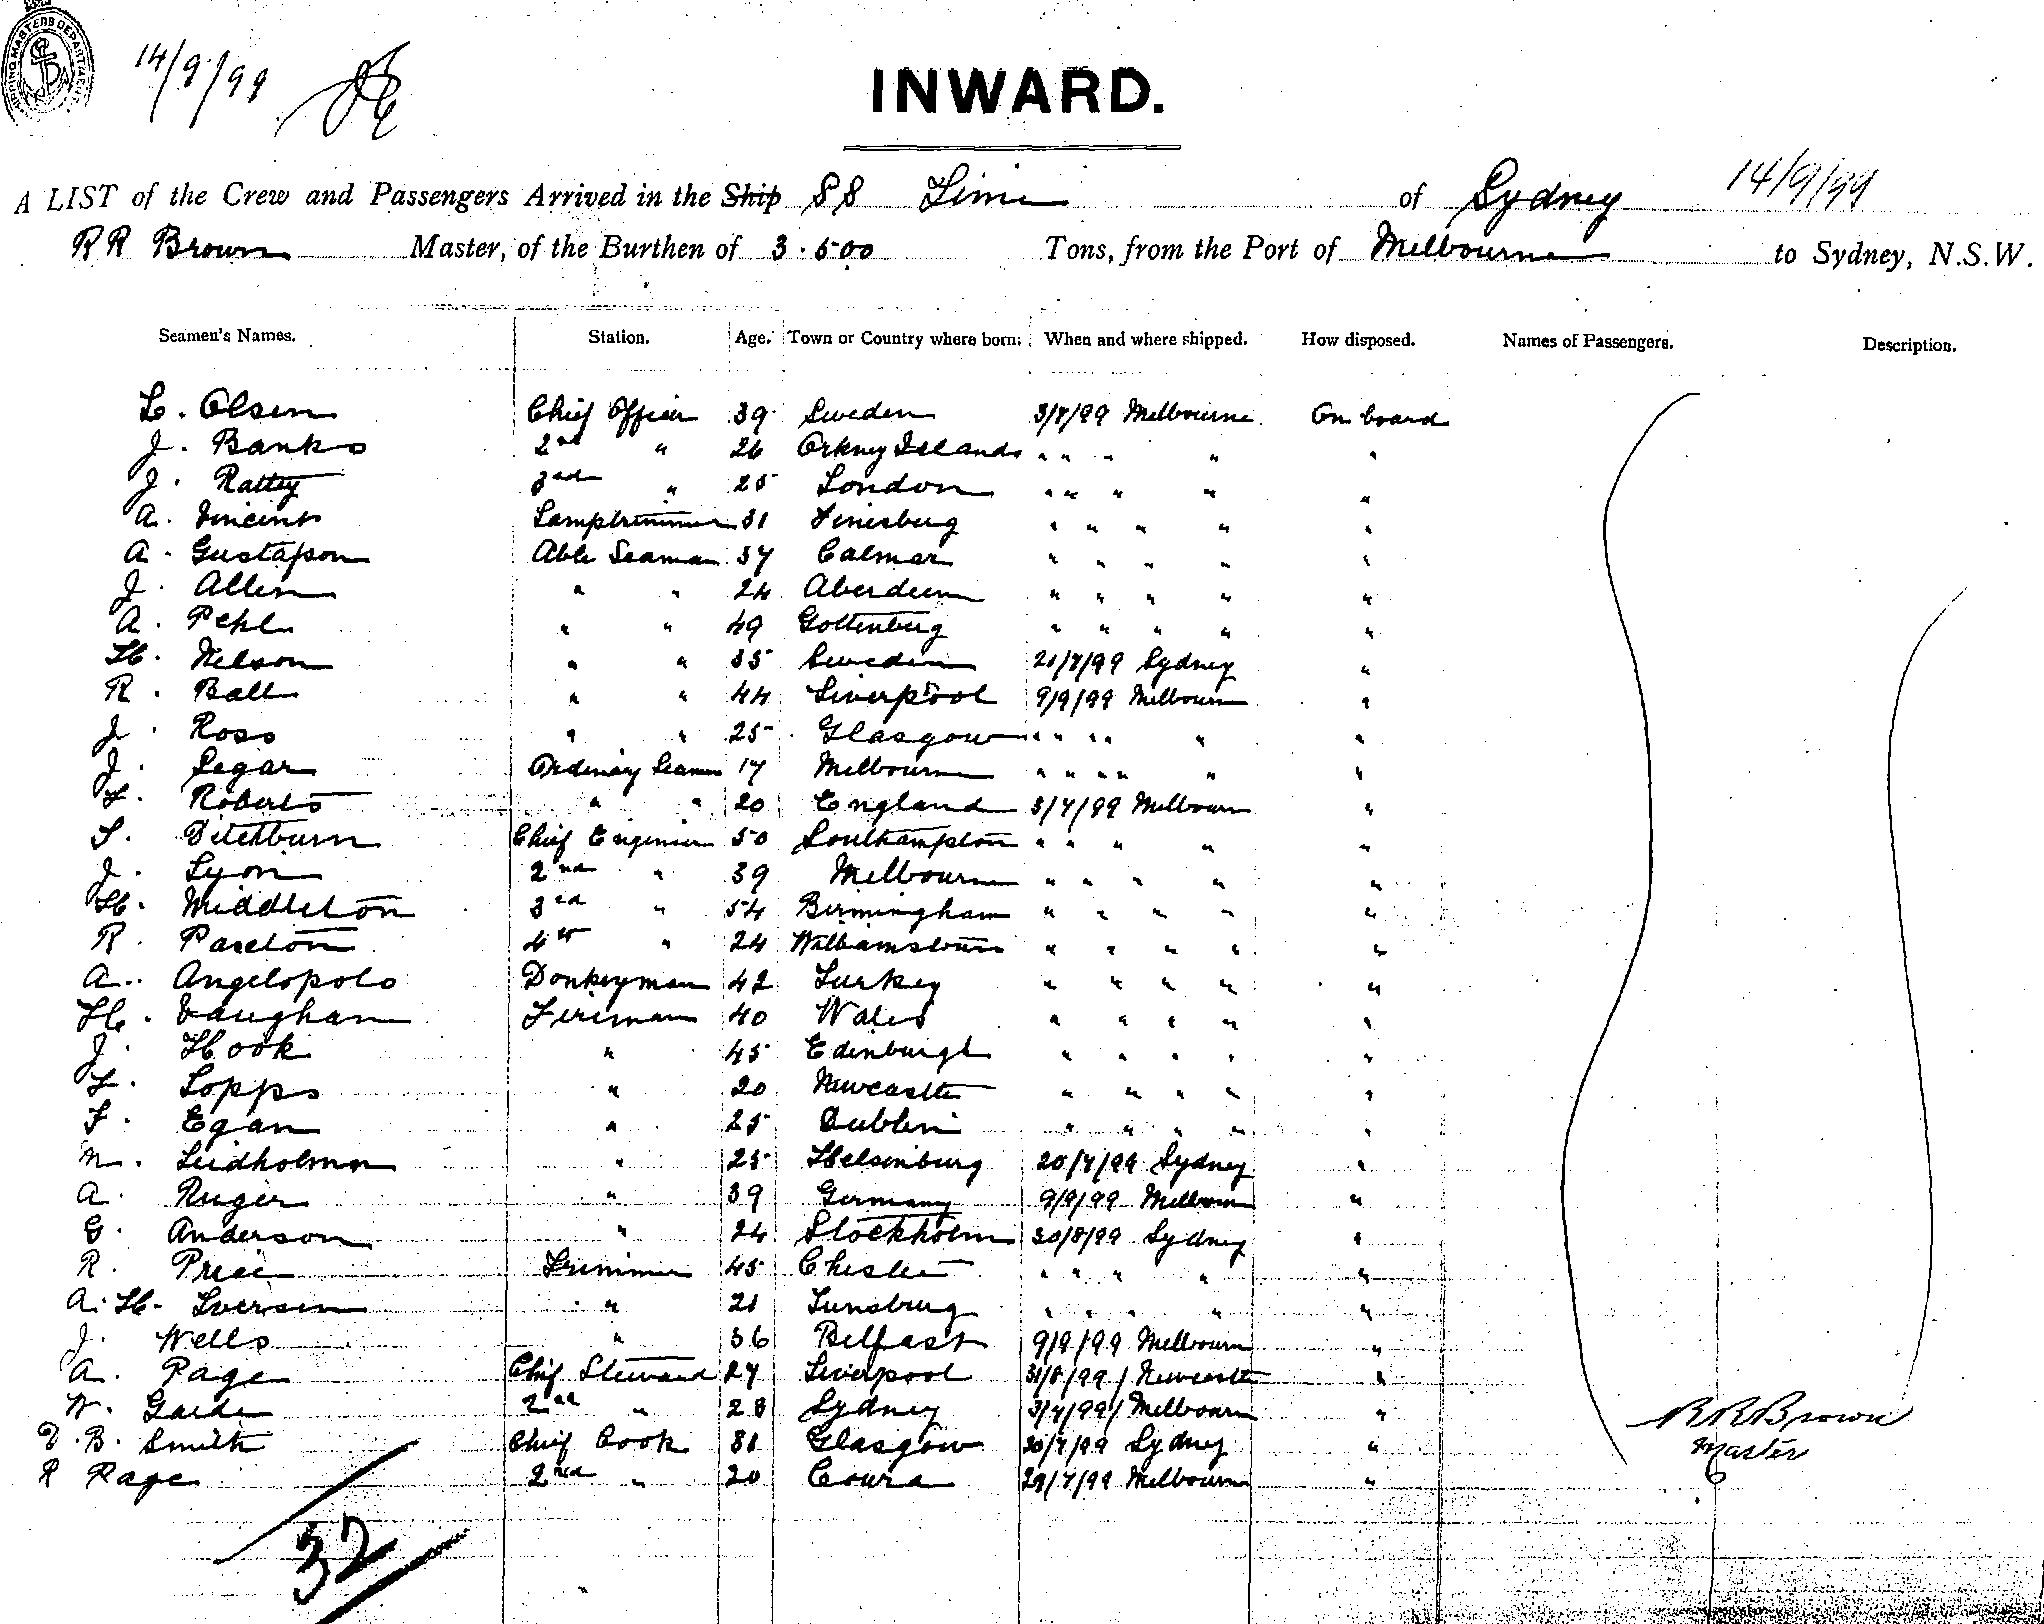 SHIPPING MASTERS DEPARTMENT
14/9/99
INWARD.
A LIST of the Crew and Passengers Arrived in the Ship SS of Sydney 14/9/99
R R Brown Master, of the Burthen of 3.500 Tons, from the Port of Melbourne to Sydney, N.S.W.
Seamen's Names. Station. Age. Town or Country where born: When and where shipped. How disposed. Names of Passengers. Description.
L. Olsen Chief Officer 39 Sweden 3/7/99 Melbourne On board
J. Banks 2nd " 26 Orkney Islands " " " " "
J. Rattey 3rd " 25 London " " " " "
A. Vincent Lamptrimmer 31 " " " " "
A. Gustafson Able Seaman 37 Calmar " " " " "
J. Allen " " 24 Aberdeen " " " " "
A. Pehl " " 49 Gottenburg " " " " "
H. Nelson " " 35 Sweden 21/7/99 Sydney "
R. Ball " " 44 Liverpool 9/9/99 Melbourn "
J. Ross " " 25 Glasgow " " " " "
J. Segar Ordinary Seaman 17 Melbourne " " " " "
L. Roberts " " 20 England 3/7/99 Melbourn "
S. Ditchburn Chief Engineer 50 Southampton " " " " "
J. Lyon 2nd " 39 Melbourne " " " " "
H. Middleton 3rd " 54 Birmingham " " " " "
R. 4th " 24 Williamstown " " " " "
A. Angelopolo Donkeyman 42 Turkey " " " " "
H. Vaughan Fireman 40 Wales " " " " "
J. Hook " 45 Edinburgh " " " " "
L. Lopps " 20 Newcastle " " " " "
F. Egan " 25 Dublin " " " " "
N. Lindholm " 25 Helsinburg 20/7/99 Sydney "
A. Ruger " 39 Germany 9/9/99 Melbourn "
G. Anderson " 24 Stockholm 30/8/99 Sydney "
R. Price Trimmer 45 Chester " " " " "
A. H. Iversen " 21 " " " " "
J. Wells " 36 Belfast 9/9/99 Melbourn "
A. Page Chief Steward 27 Liverpool 31/8/99 / Newcastle "
W. 2nd " 23 Sydney 3/7/99 / Melbourn "
D. B. Smith Chief Cook 31 Glasgow 20/7/99 Sydney "
R Page 2nd " 20 Cowra 29/7/99 Melbourne "
RR Brown
Master
32